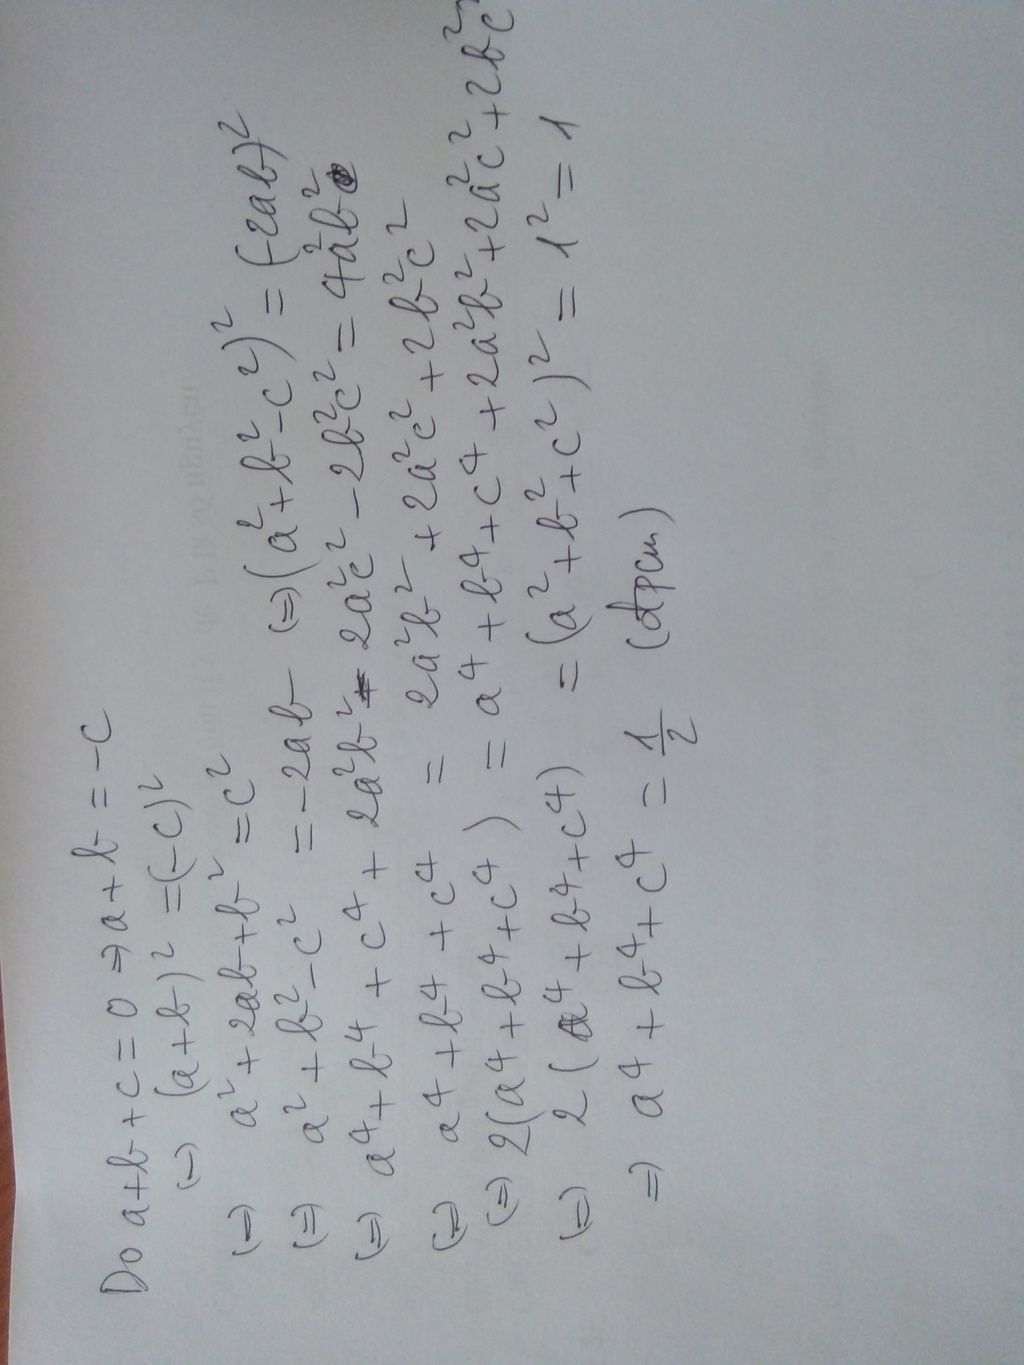 Do a+b+c=0 ⇒ a+b=-c
(=) (a+b)² =(-c)²
(=) a²+2ab+b²=c²
(=) a²+b²-c² =-2ab (=) (a²+b²-c²)²=(-2ab)²
(=) a⁴+b⁴+c⁴+2a²b²-2a²c²-2b²c²=4a²b²
(=) a⁴+b⁴+c⁴ = 2a²b²+2a²c²+2b²c²
(=) 2(a⁴+b⁴+c⁴) = a⁴+b⁴+c⁴+2a²b²+2a²c²+2b²c²
(=) 2(a⁴+b⁴+c⁴) =(a²+b²+c²)²=1²=1
⇒ a⁴+b⁴+c⁴=1/2 (đpcm)